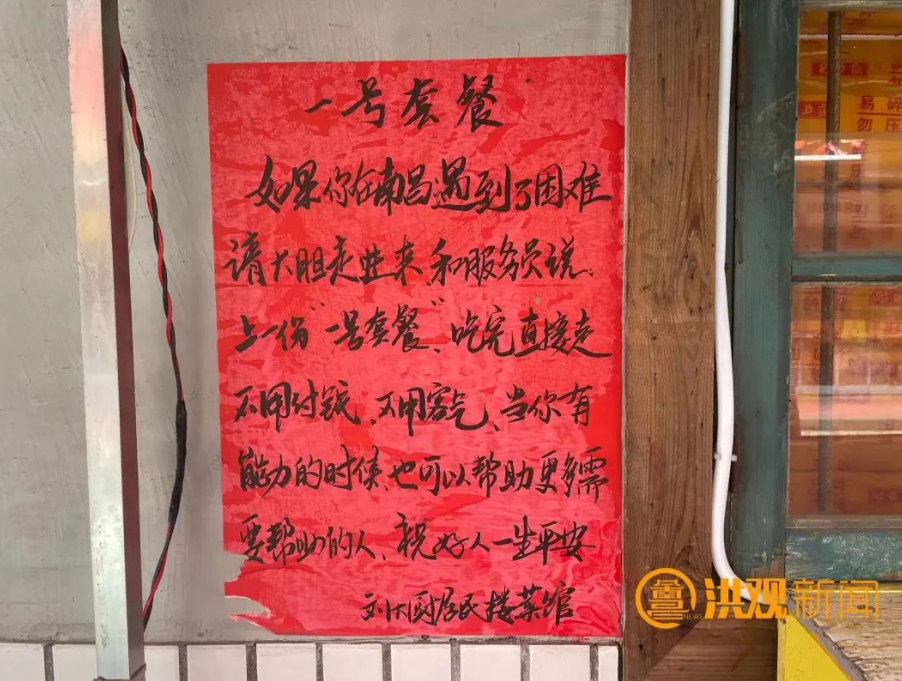 一号套餐
如果你在南昌遇到了困难
请大胆走进来、和服务员说、
上一份“一号套餐”、吃完直接走
不用付钱、不用客气、当你有
能力的时侯、也可以帮助更多需
要帮助的人、祝好人一生平安
刘大厨居民楼菜馆
易碎
勿压
洪观新闻
NEWS